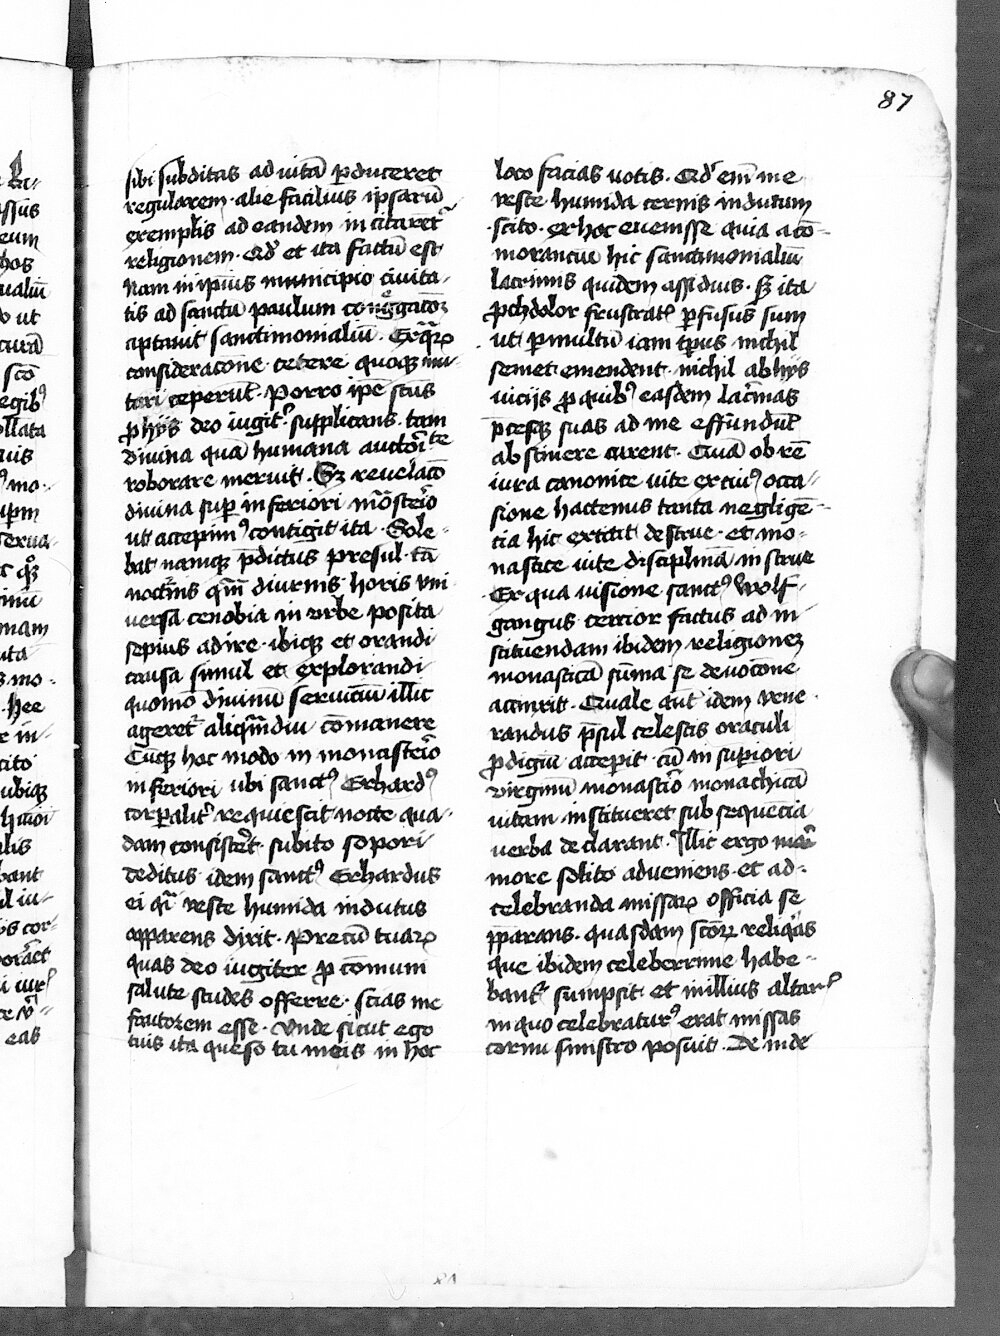 87
sibi subditas ad uitā ꝑduceret
regularem · alie facilius ipsarū
exemplis ad eandem incitarēt᷑
religionem · Qd̛ et ita factū est
Nam in ipsius municipio ciuita-
tis ad sanctū paulum
aptauit sanctimonialiū · Ex quaꝝ
consideracōne cetere quoqꝫ mu-
tari ceperūt · Porro ip̄e scūs
ꝓ hijs deo iugit᷑ supplicans · tam
diuina quā humana auctori͛te
roborare meruit · Sꝫ reuelacō
diuina suꝑ inferiori mōsterio
ut accepimꝰ contigit ita · Sole-
bat namqꝫ p̄dictus presul · tā
nocturnis qm̄ diurnis horis vni-
uersa cenobia in vrbe posita
sepius adire · ibiqꝫ et orandi
causa simul et explorandi
quomō diuinū seruiciū illic
ageret᷑ aliqm̄diu cōmanere
Cūqꝫ hoc modo in monasterio
inferiori ubi sanctꝰ Erhardꝰ
corꝑalit᷑ requiescit nocte qua-
dam consistēt · subito sopori
deditus idem sanctꝰ Erhardus
ei q̄i veste humida indutus
apparens dixit · Precū tuaꝝ
quas deo iugiter ꝓ cōmuni
salute studes offerre · scias me
fautorem esse · Vnde sicut ego
tuis ita queso tu meis in hoc
loco facias uotis · Qd̛ em̄ me
veste humida cernis indutum
scito · ex hoc euenisse quia a cō-
morancium hic sanctimonialiū
lacrimis quidem assiduis · sꝫ ita
ꝓchdolor frustrat᷑ ꝑfusus sum
ut ꝑ multū iam tp̄us nichil
semet emendent · nichil ab hijs
uicijs ꝓ quibꝰ easdem lac͛mas
p̄cesqꝫ suas ad me effundūt
abstinere curent · Quā ob rē
iura canonice uite ex cuiꝰ occa-
sione hactenus tanta negligē-
cia hic extitit destrue · et mo-
nastice uite disciplinā instrue
Ex qua uisione sanctꝰ Wolf-
gangus cercior factus ad in-
stituendam ibidem religionem
monasticā sūma se deuocōne
accinxit · Quale aūt idem vene-
randus p̄sul celestis oraculi
ꝓdigiū accepit · cū in suꝑiori
virginū monast͛io monachicā
uitam institueret subsequencia
verba declarant · Illic ergo
more solito adueniens et ad-
celebranda missaꝝ officia se
p̄parans · quasdam scōꝝ reliq͛as
que ibidem celeberrime habe-
bant᷑ sumpsit · et in illius altar͛
in quo celebraturꝰ erat missas
cornu sinistro posuit · Deinde